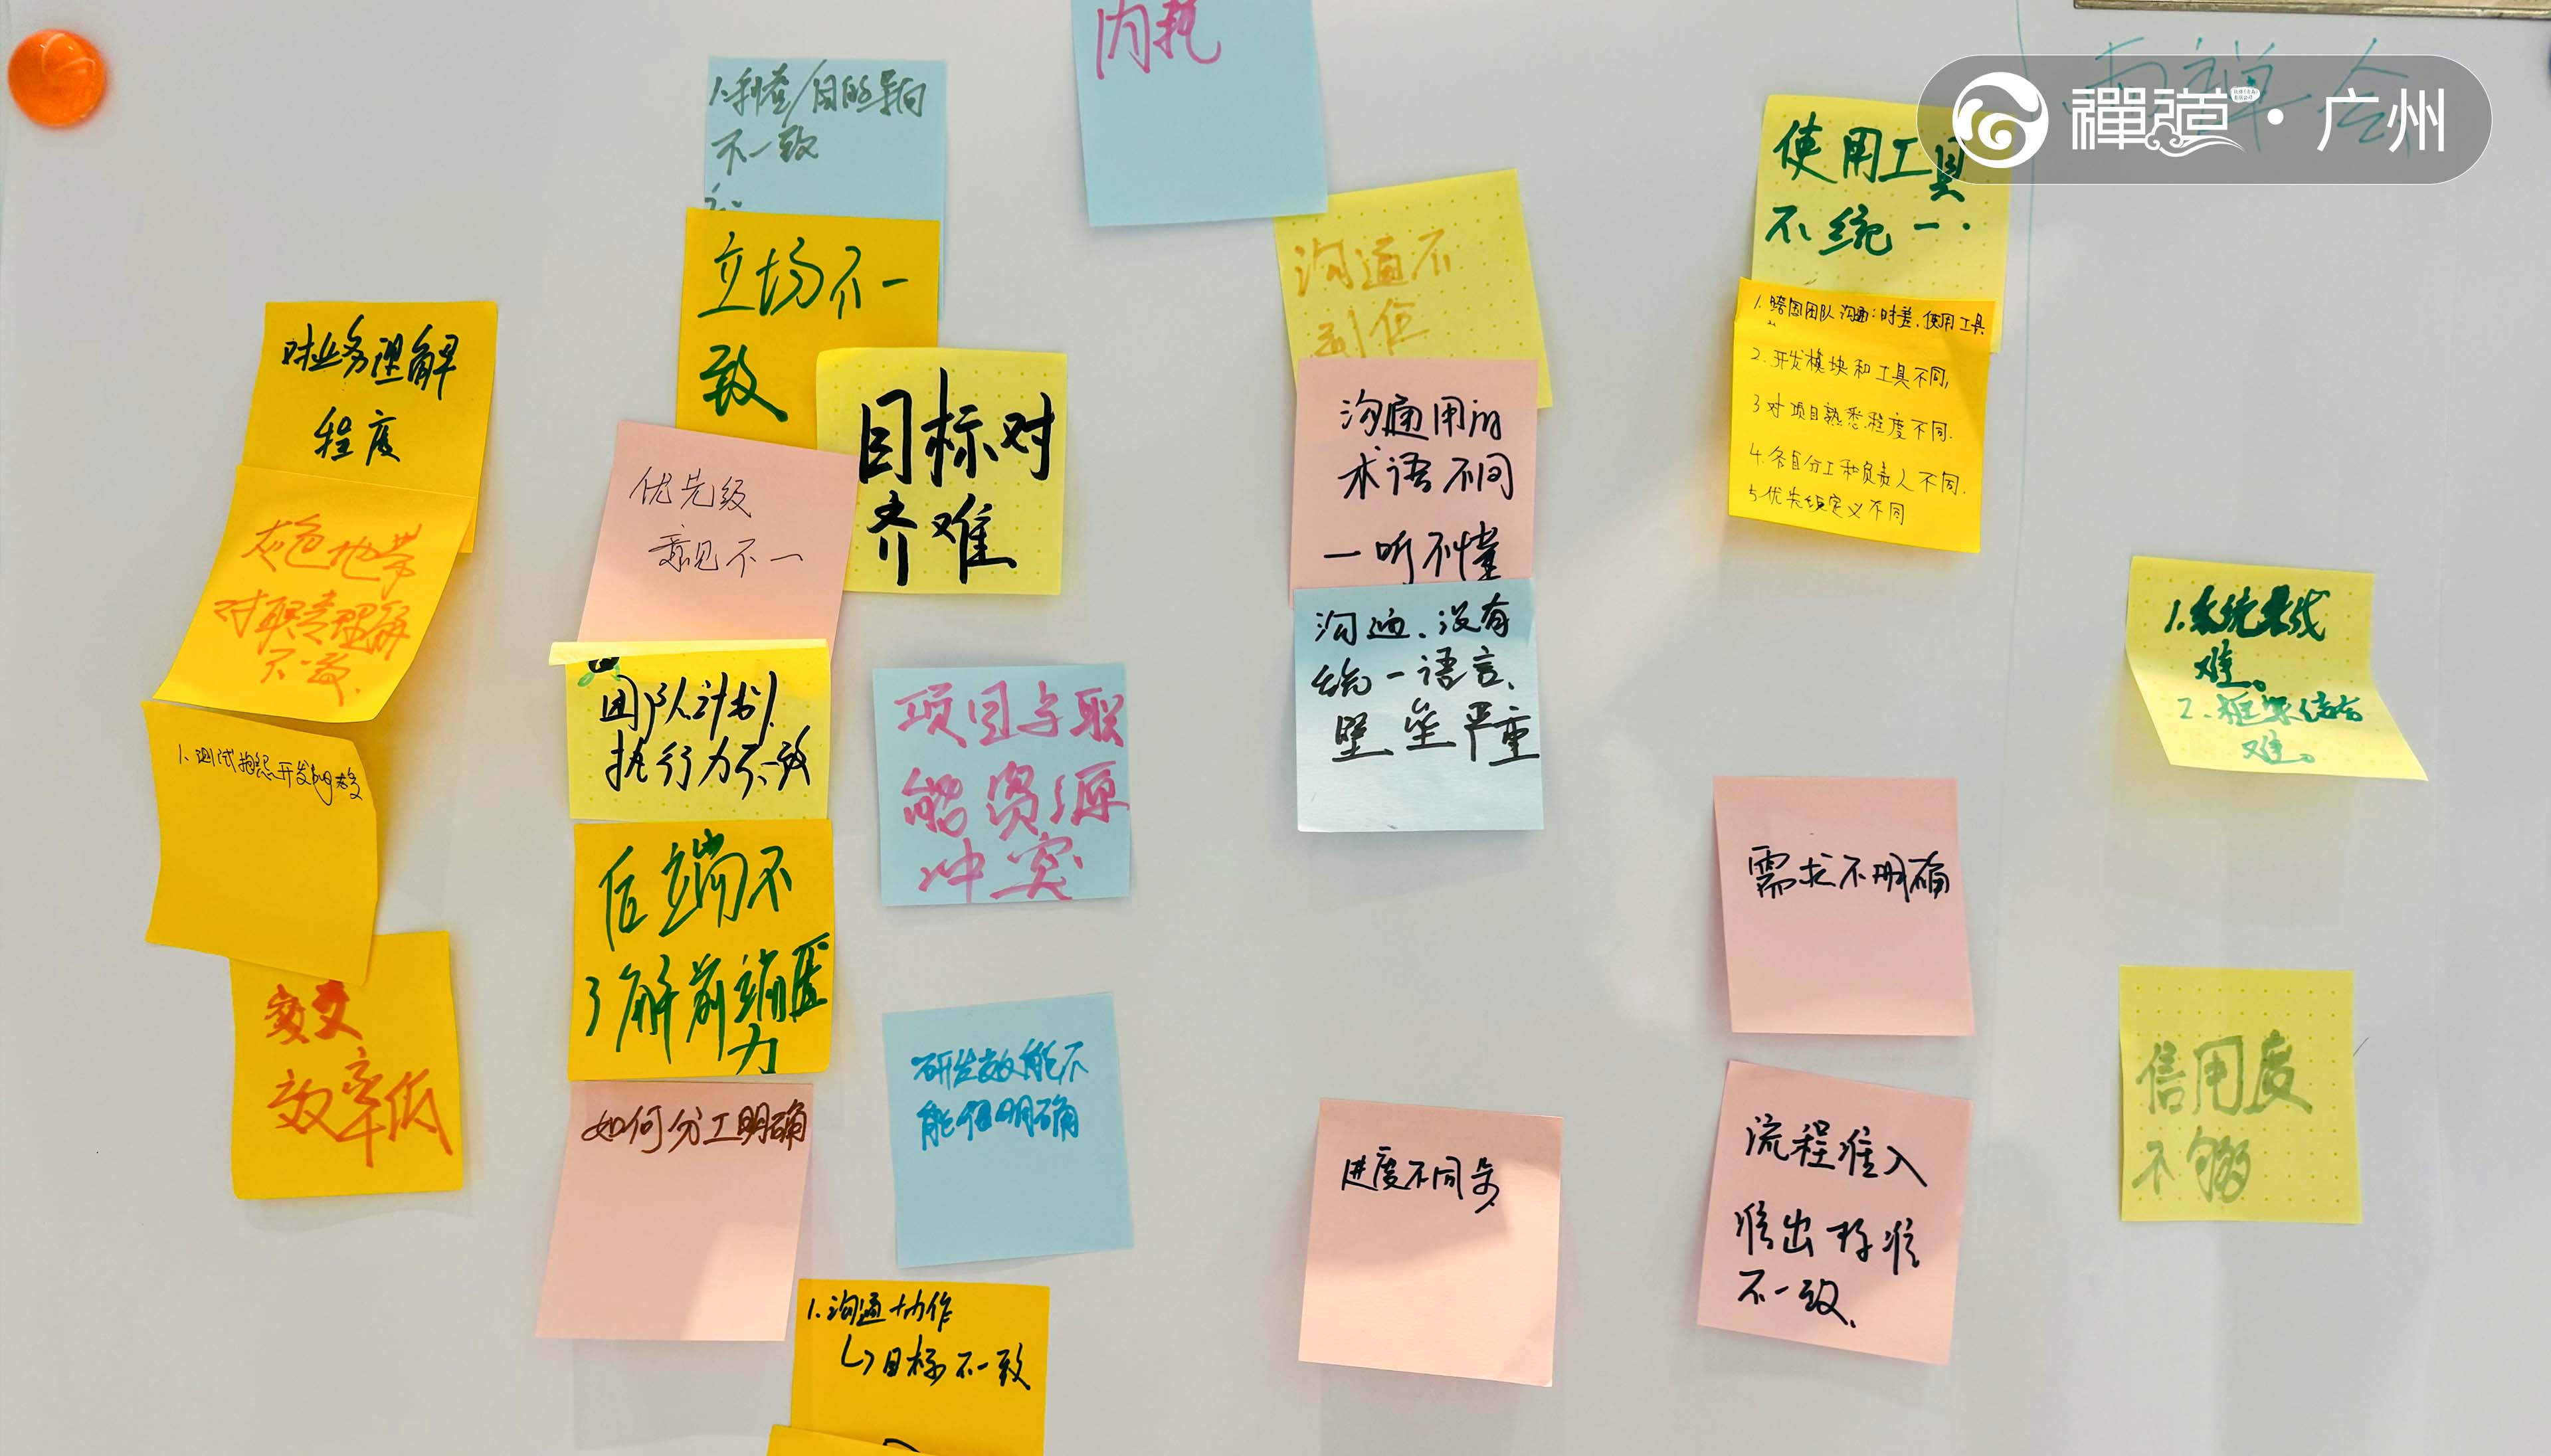 内耗
1.利益/目的导向
不一致
立场不一
致
目标对
齐难
优先级
意见不一
团队计划
执行力不一致
后端不
了解前端压
力
如何分工明确
项目与职
能资源
冲突
研发效能不
明确
1.沟通协作
↳目标不一致
对业务理解
程度
灰色地带
对职责理解
不一致.
1.测试抱怨开发
效率低
沟通不
到位
沟通用的
术语不同
一听不懂
沟通.没有
统一语言、
壁垒严重
进度不同步
禪道·广州
使用工具
不统一.
1.跨国团队沟通:时差.使用工具
2.开发模块和工具不同,
3对项目熟悉程度不同.
4.各自分工和负责人不同.
5优先级定义不同
需求不明确
流程准入
准出标准
不一致.
1.系统集成
难。
2.框架结合
难。
信用度
不够